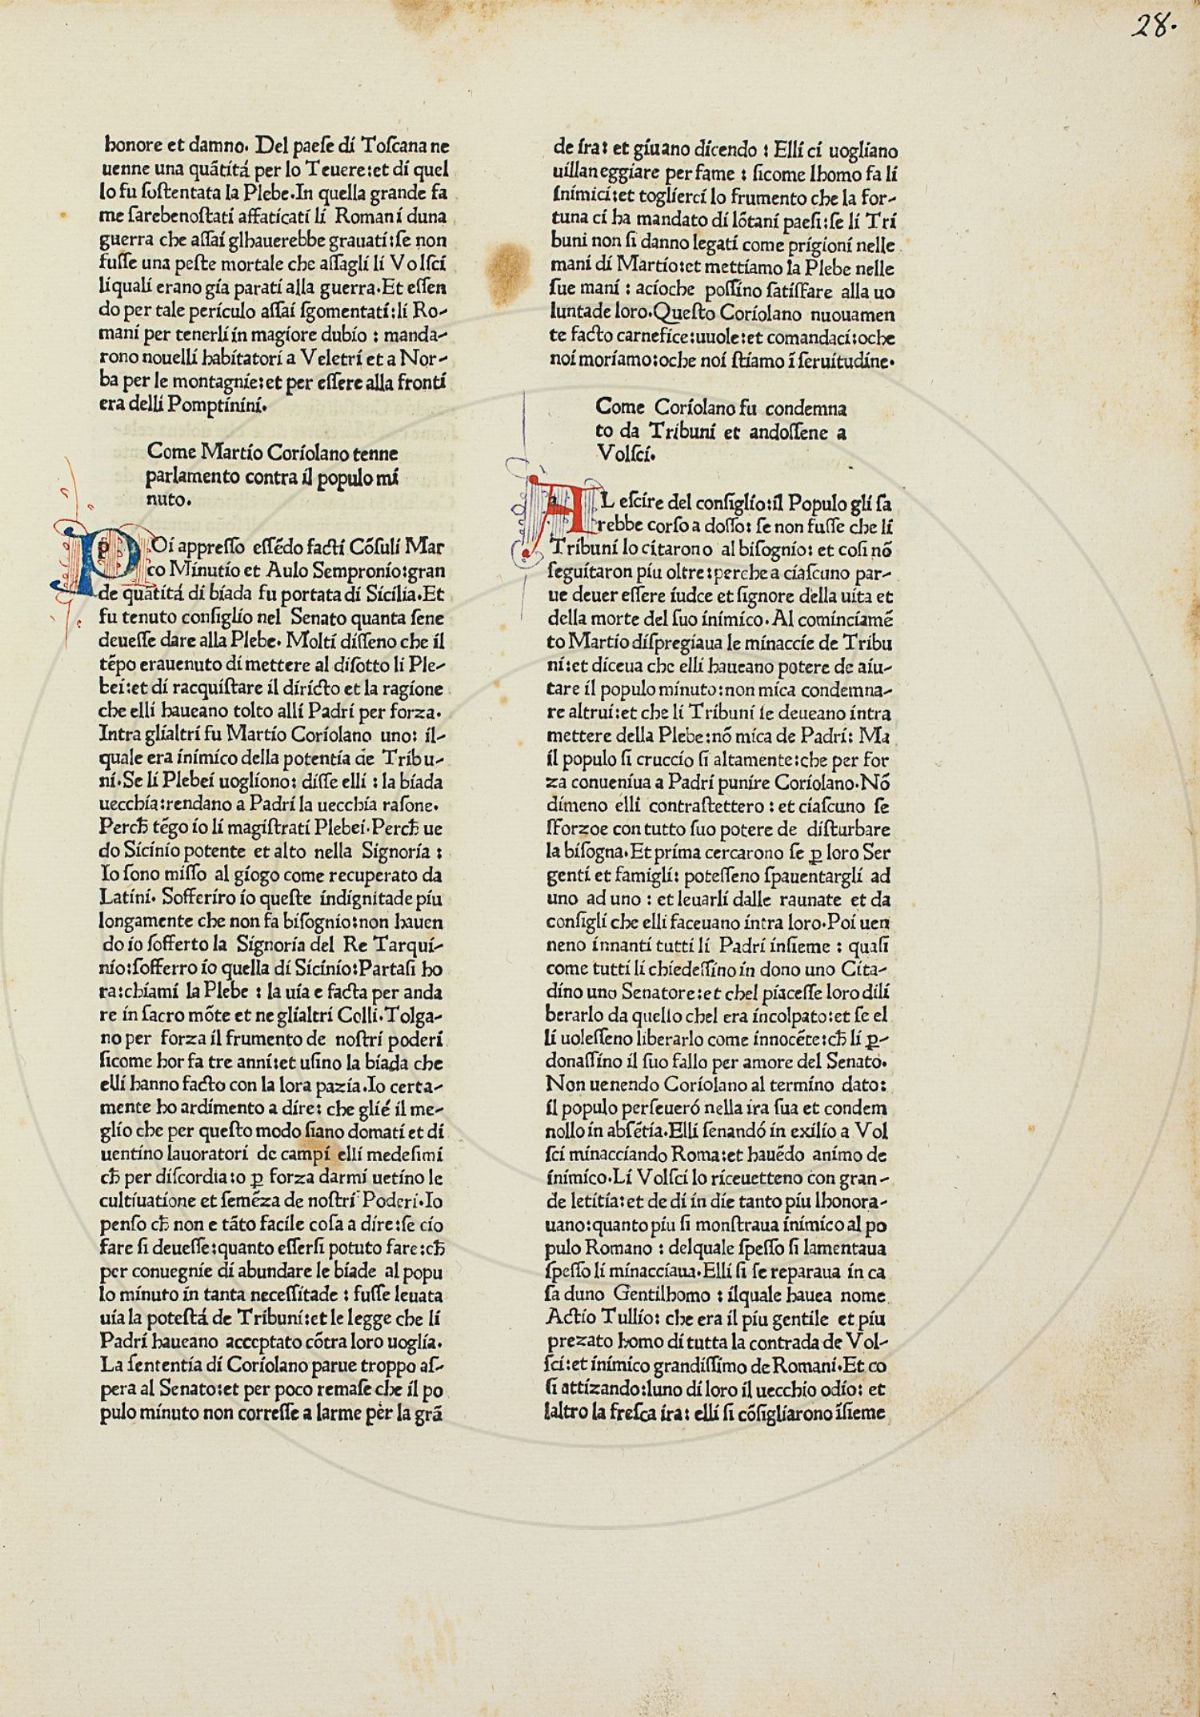 28.
honore et damno. Del paeſe di Toſcana ne
uenne una quãtitá per lo Teuere:et di quel
lo fu ſoſtentata la Plebe.In quella grande fa
me ſarebenoſtati affaticati li Romani duna
guerra che aſſai glhauerebbe grauati:ſe non
fuſſe una peſte mortale che aſſagli li Volſci
liquali erano gia parati alla guerra.Et eſſen
do per tale periculo aſſai ſgomentati:li Ro-
mani per tenerli in magiore dubio : manda-
rono nouelli habitatori a Veletri et a Nor-
ba per le montagnie:et per eſſere alla fronti
era delli Pomptinini.
Come Martio Coriolano tenne
parlamento contra il populo mi
nuto.
POi appreſſo eſſẽdo facti Cõſuli Mar
co Minutio et Aulo Sempronio:gran
de quãtitá di biada fu portata di Sicilia.Et
fu tenuto conſiglio nel Senato quanta ſene
deueſſe dare alla Plebe. Molti diſſeno che il
tẽpo erauenuto di mettere al diſotto li Ple-
bei:et di racquiſtare il diricto et la ragione
che elli haueano tolto alli Padri per forza.
Intra glialtri fu Martio Coriolano uno: il-
quale era inimico della potentia de Tribu-
ni.Se li Plebei uogliono: diſſe elli : la biada
uecchia:rendano a Padri la uecchia raſone.
Percħ tẽgo io li magiſtrati Plebei.Percħ ue
do Sicinio potente et alto nella Signoria :
Io ſono miſſo al giogo come recuperato da
Latini. Sofferiro io queſte indignitade piu
longamente che non fa biſognio:non hauen
do io ſofferto la Signoria del Re Tarqui-
nio:ſofferro io quella di Sicinio:Partaſi ho
ra:chiami la Plebe : la uia e facta per anda
re in ſacro mõte et ne glialtri Colli.Tolga-
no per forza il frumento de noſtri poderi
ſicome hor fa tre anni:et uſino la biada che
elli hanno facto con la lora pazia.Io certa-
mente ho ardimento a dire: che glié il me-
glio che per queſto modo ſiano domati et di
uentino lauoratori de campi elli medeſimi
cħ per diſcordia:o ꝑ forza darmi uetino le
cultiuatione et ſemẽza de noſtri Poderi.Io
penſo cħ non e tãto facile coſa a dire:ſe cio
fare ſi deueſſe:quanto eſſerſi potuto fare:cħ
per conuegnie di abundare le biade al popu
lo minuto in tanta neceſſitade : fuſſe leuata
uia la poteſtá de Tribuni:et le legge che li
Padri haueano acceptato cõtra loro uoglia.
La ſententia di Coriolano parue troppo aſ-
pera al Senato:et per poco remaſe che il po
pulo minuto non correſſe a larme per la grã
de ira: et giuano dicendo : Elli ci uogliano
uillaneggiare per fame : ſicome lhomo fa li
inimici:et toglierci lo frumento che la for-
tuna ci ha mandato di lõtani paeſi:ſe li Tri
buni non ſi danno legati come prigioni nelle
mani di Martio:et mettiamo la Plebe nelle
ſue mani : acioche poſſino ſatiſfare alla uo
luntade loro.Queſto Coriolano nuouamen
te facto carnefice:uuole:et comandaci:oche
noi moriamo:oche noi ſtiamo ĩ ſeruitudine.
Come Coriolano fu condemna
to da Tribuni et andoſſene a
Volſci.
AL eſcire del conſiglio:il Populo gli ſa
rebbe corſo a doſſo: ſe non fuſſe che li
Tribuni lo citarono al biſognio: et coſi nõ
ſeguitaron piu oltre:perche a ciaſcuno par-
ue deuer eſſere iudce et ſignore della uita et
della morte del ſuo inimico.Al cominciamẽ
to Martio diſpregiaua le minaccie de Tribu
ni:et diceua che elli haueano potere de aiu-
tare il populo minuto:non mica condemna-
re altrui:et che li Tribuni ſe deueano intra
mettere della Plebe:nõ mica de Padri: Ma
il populo ſi cruccio ſi altamente:che per for
za conueniua a Padri punire Coriolano.Nõ
dimeno elli contraſtettero : et ciaſcuno ſe
ſforzoe con tutto ſuo potere de diſturbare
la biſogna.Et prima cercarono ſe ꝑ loro Ser
genti et famigli: poteſſeno ſpauentargli ad
uno ad uno : et leuarli dalle raunate et da
conſigli che elli faceuano intra loro.Poi uen
neno innanti tutti li Padri inſieme : quaſi
come tutti li chiedeſſino in dono uno Cita-
dino uno Senatore:et chel piaceſſe loro dili
berarlo da quello chel era incolpato:et ſe el
li uoleſſeno liberarlo come innocẽte:cħ li ꝑ-
donaſſino il ſuo fallo per amore del Senato.
Non uenendo Coriolano al termino dato:
il populo perſeueró nella ira ſua et condem
nollo in abſẽtia.Elli ſenandó in exilio a Vol
ſci minacciando Roma:et hauẽdo animo de
inimico.Li Volſci lo riceuetteno con gran-
de letitia:et de di in die tanto piu lhonora-
uano:quanto piu ſi monſtraua inimico al po
pulo Romano : delquale ſpeſſo ſi lamentaua
ſpeſſo li minacciaua.Elli ſi ſe reparaua in ca
ſa duno Gentilhomo : ilquale hauea nome
Actio Tullio: che era il piu gentile et piu
prezato homo di tutta la contrada de Vol-
ſci:et inimico grandiſſimo de Romani.Et co
ſi attizando:luno di loro il uecchio odio: et
laltro la freſca ira: elli ſi cõſigliarono ĩſieme